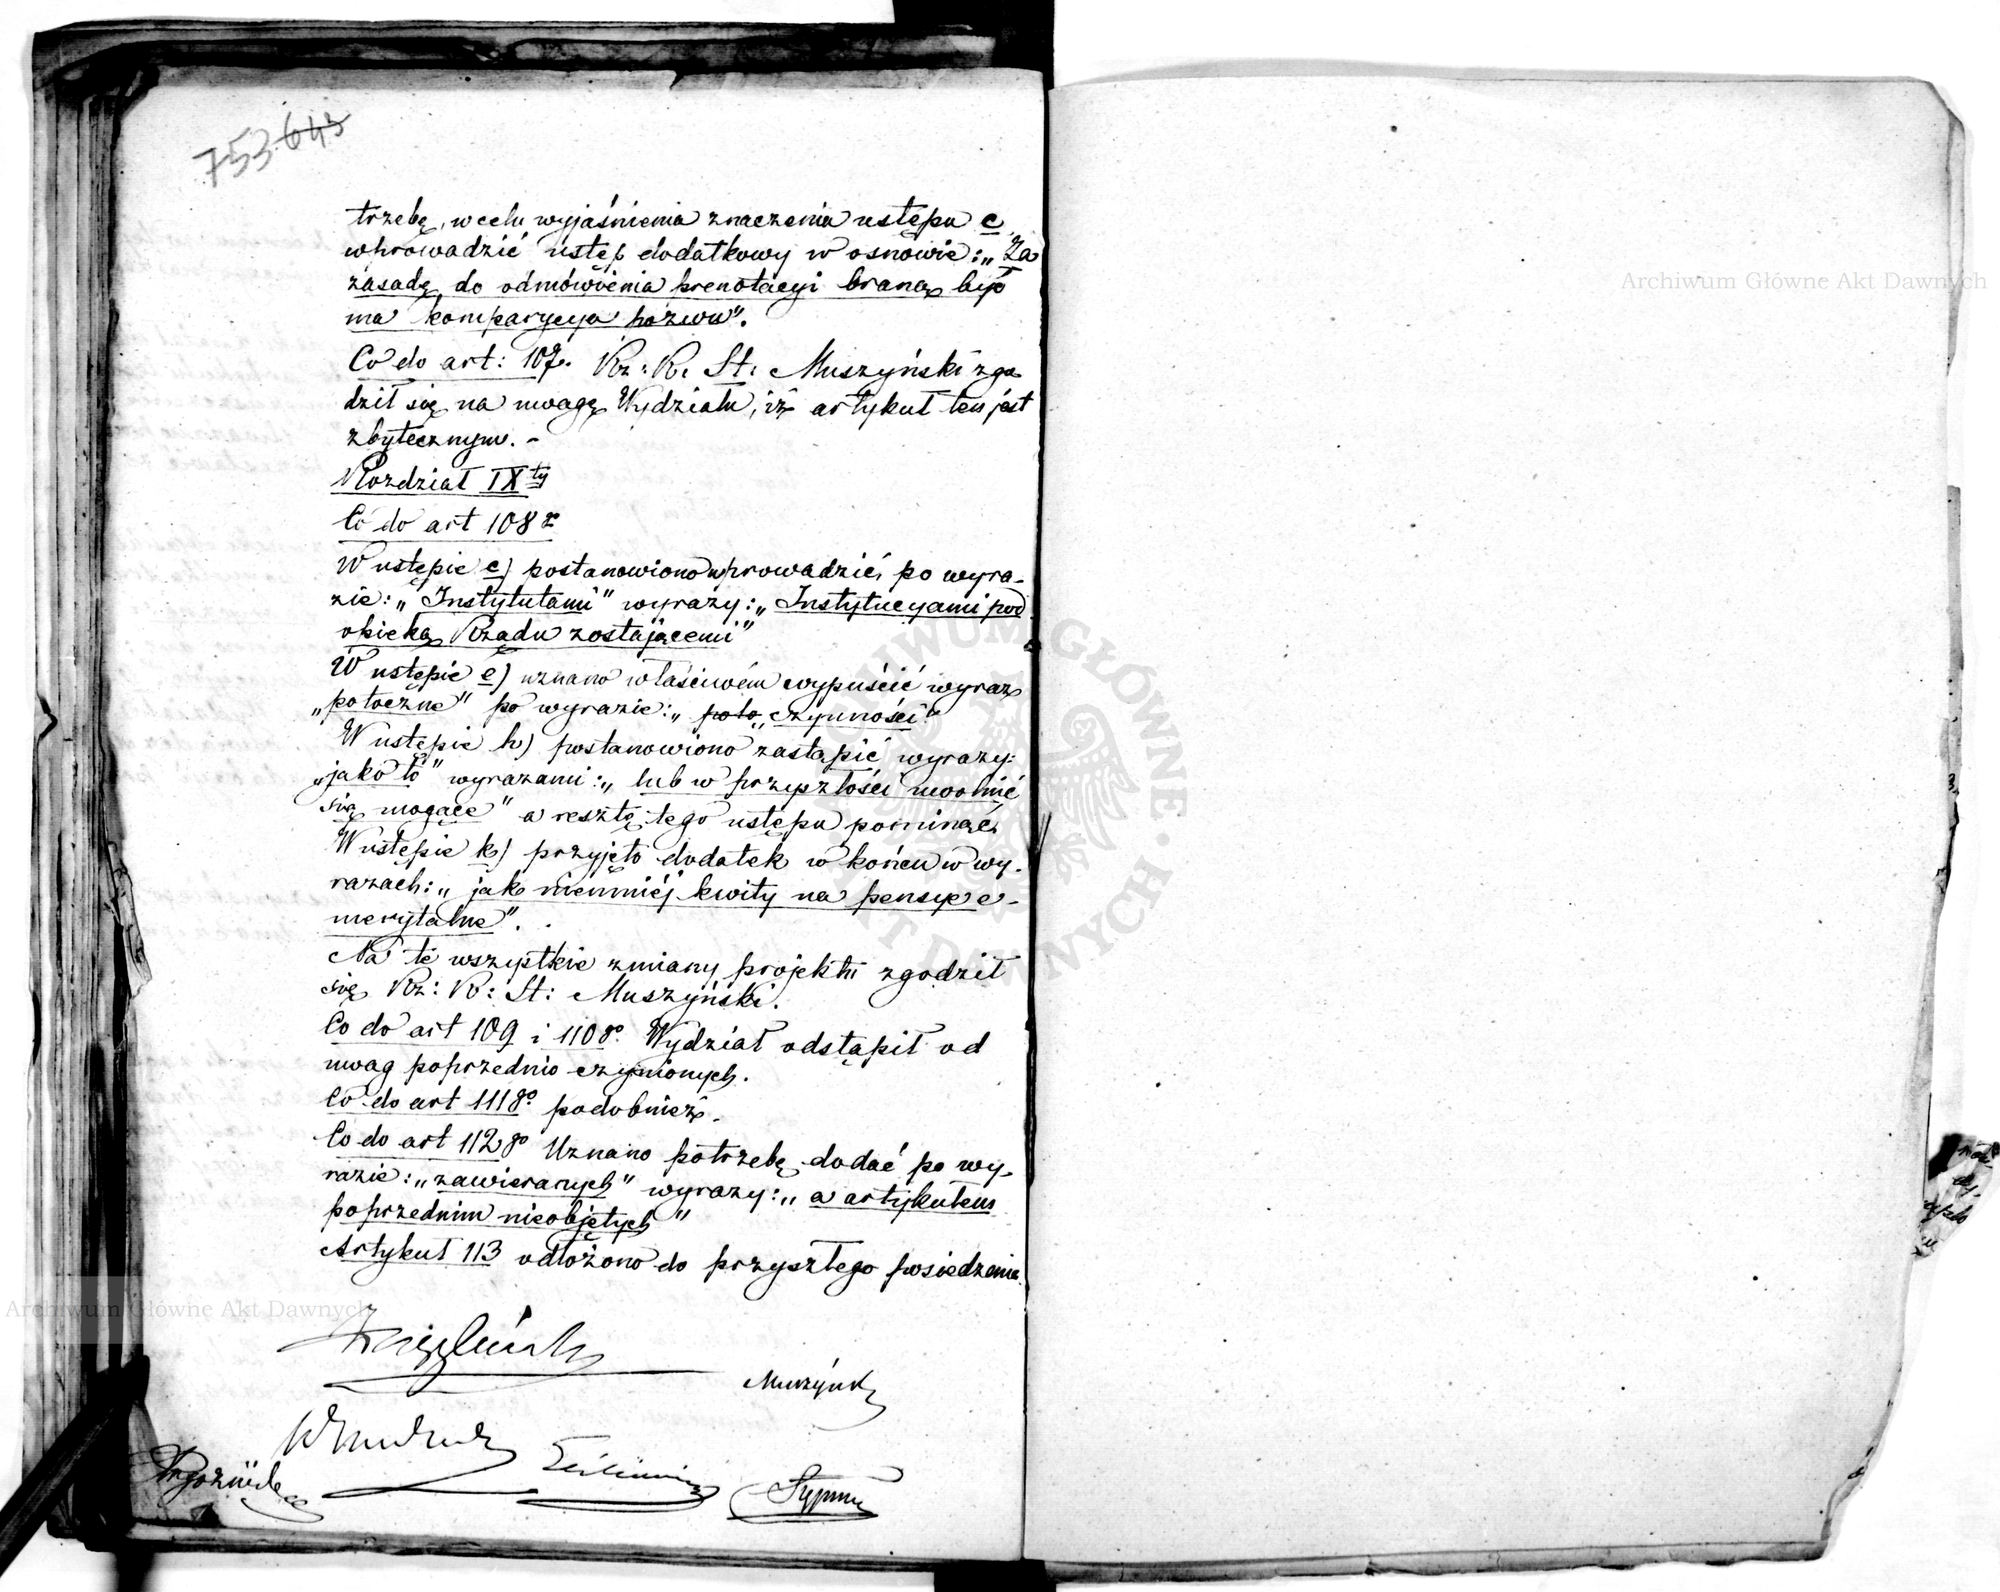 753 643
trzebę, w celu wyjaśnienia znaczenia ustępu c,
wprowadzić ustęp dodatkowy w osnowie: „Za
zasadę do odmówienia prenotacyi braną być
ma komparycya pozwu".
Co do art: 107. Rz: R. St: Muszyński zgo
dził się na uwagę Wydziału, iż artykuł ten jest
zbytecznym. –
Rozdział IXty
Co do art 108go
W ustępie c) postanowiono wprowadzić, po wyra-
zie: „Instytutami" wyrazy: „Instytucyami pod
opieką Rządu zostającemi"
W ustępie e) uznano właściwém wypuścić wyraz
„potoczne" po wyrazie: „poto „czynności".
W ustępie h) postanowiono zastąpić wyrazy:
„jako to" wyrazami: „lub w przyszłości uwolnić
się mogące" a resztę tego ustępu pominąć.
W ustępie k) przyjęto dodatek w końcu w wy-
razach: „jak niemniéj kwity na pensye e-
merytalne".
Na te wszystkie zmiany projektu zgodził
się Rz: R: St: Muszyński.
Co do art 109 i 110go. Wydział odstąpił od
uwag poprzednio czynionych.
Co do art 111go podobnież.
Co do art 112go Uznano potrzebę dodać po wy-
razie: „zawieranych" wyrazy: „a artykułem
poprzednim nieobjętych"
Artykuł 113 odłożono do przyszłego posiedzenia.
Muszyński
Archiwum Główne Akt Dawnych
Archiwum Główne Akt Dawnych
ARCHIWUM GŁÓWNE AKT DAWNYCH